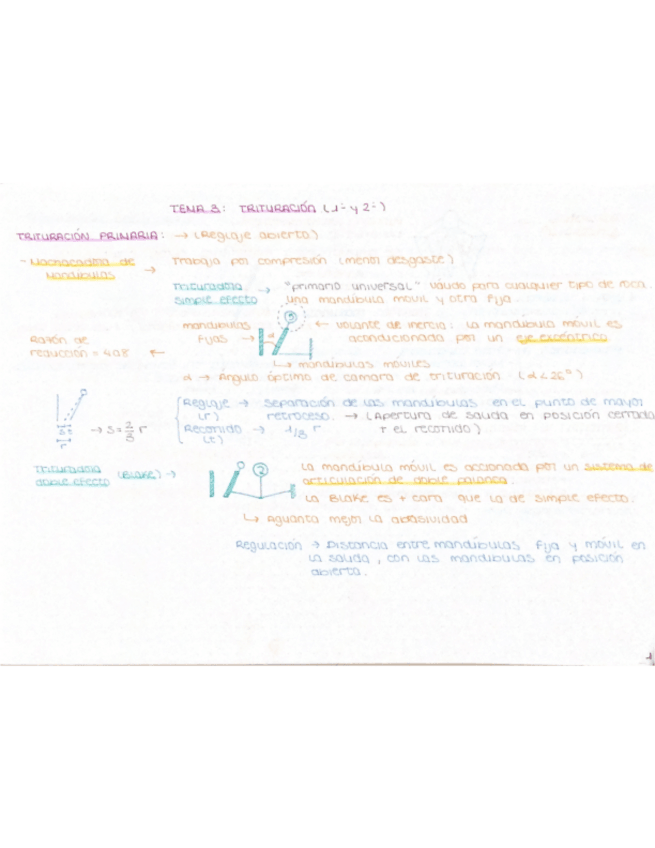 TEMA 3: TRITURACIÓN (1ª y 2ª)
TRITURACIÓN PRIMARIA: → (Reglaje abierto)
- Machacadora de Mandíbulas →
Trabaja por compresión (menor desgaste)
Trituradora simple efecto → "primario universal" válido para cualquier tipo de roca.
una mandíbula móvil y otra fija.
mandíbulas fijas →
α
1
← volante de inercia: la mandíbula móvil es
accondicionada por un eje excéntrico
Razón de
reducción = 4 a 8 ←
↳ mandíbulas móviles
α → Ángulo óptimo de cámara de trituración (α < 26°)
s t
r
→ s = 2/3 r
Reglaje (r) → Separación de las mandíbulas en el punto de mayor
retroceso. → (Apertura de salida en posición cerrada
+ el recorrido)
Recorrido (t) → 1/3 r
Trituradora doble efecto (BLAKE) →
2
La mandíbula móvil es accionada por un sistema de
articulación de doble palanca.
La BLAKE es + cara que la de simple efecto.
↳ Aguanta mejor la abrasividad
Regulación → Distancia entre mandíbulas fija y móvil en
la salida, con las mandíbulas en posición
abierta.
1